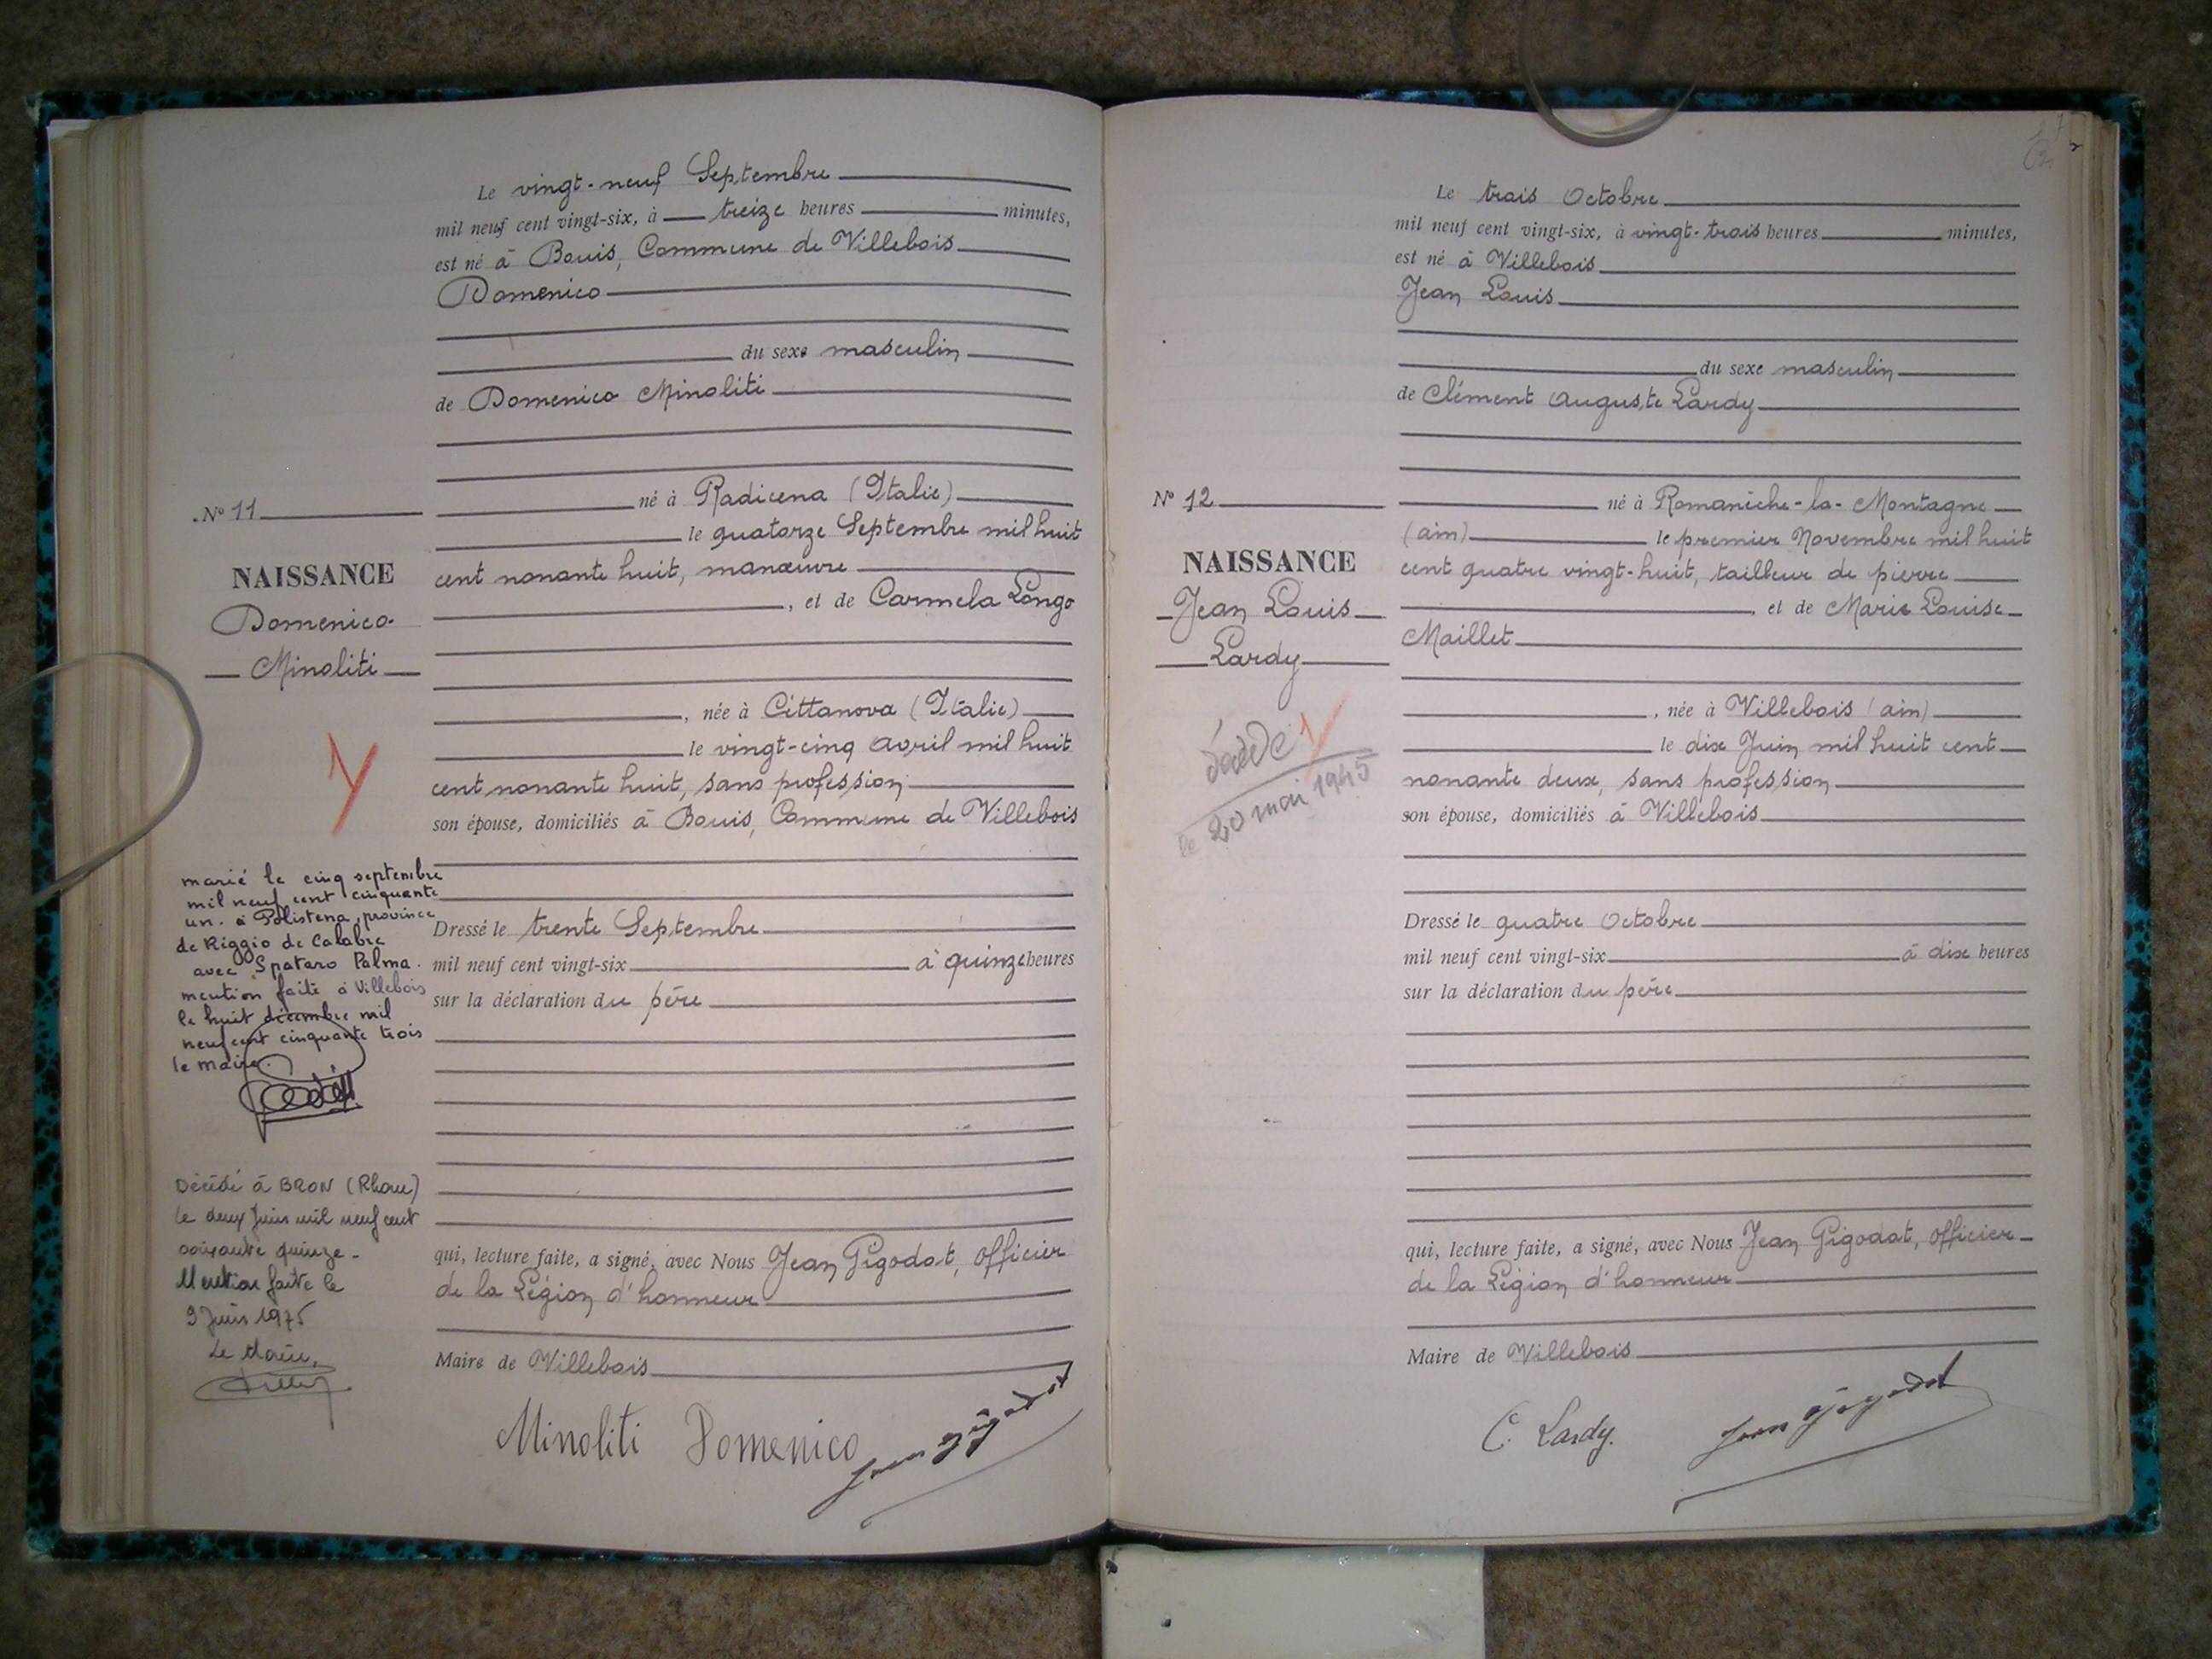 Le vingt-neuf Septembre
mil neuf cent vingt-six, à treize heures minutes,
est né à Bouis, Commune de Villebois
Domenico
du sexe masculin
de Domenico Minoliti
né à Radicena (Italie)
le quatorze Septembre mil huit
cent nonante huit, manœuvre
, et de Carmela Longo
, née à Cittanova (Italie)
le vingt-cinq avril mil huit
cent nonante huit, sans profession
son épouse, domiciliés à Bouis, Commune de Villebois
Dressé le trente Septembre
mil neuf cent vingt-six à quinze heures
sur la déclaration du père
qui, lecture faite, a signé, avec Nous Jean Gigodot, officier
de la Légion d'honneur
Maire de Villebois
Minoliti Domenico Jean Gigodot
N° 11
NAISSANCE
Domenico
Minoliti
marié le cinq septembre
mil neuf cent cinquante
un. à Polistena, province
de Riggio de Calabre
avec Spataro Palma.
mention faite à Villebois
le huit décembre mil
neuf cent cinquante trois
le maire.
Décédé à BRON (Rhône)
le deux Juin mil neuf cent
soixante quinze -
Mention faite le
9 Juin 1975
Le Maire,
Le trois Octobre
mil neuf cent vingt-six, à vingt-trois heures minutes,
est né à Villebois
Jean Louis
du sexe masculin
de Clément Auguste Lardy
né à Romanèche-la-Montagne
(ain) le premier Novembre mil huit
cent quatre vingt-huit, tailleur de pierre
, et de Marie Louise
Maillet
, née à Villebois (ain)
le dix Juin mil huit cent
nonante deux, sans profession
son épouse, domiciliés à Villebois
Dressé le quatre Octobre
mil neuf cent vingt-six à dix heures
sur la déclaration du père
qui, lecture faite, a signé, avec Nous Jean Gigodot, officier
de la Légion d'honneur
Maire de Villebois
C. Lardy. Jean Gigodot
N° 12
NAISSANCE
Jean Louis
Lardy
le 20 mai 1945